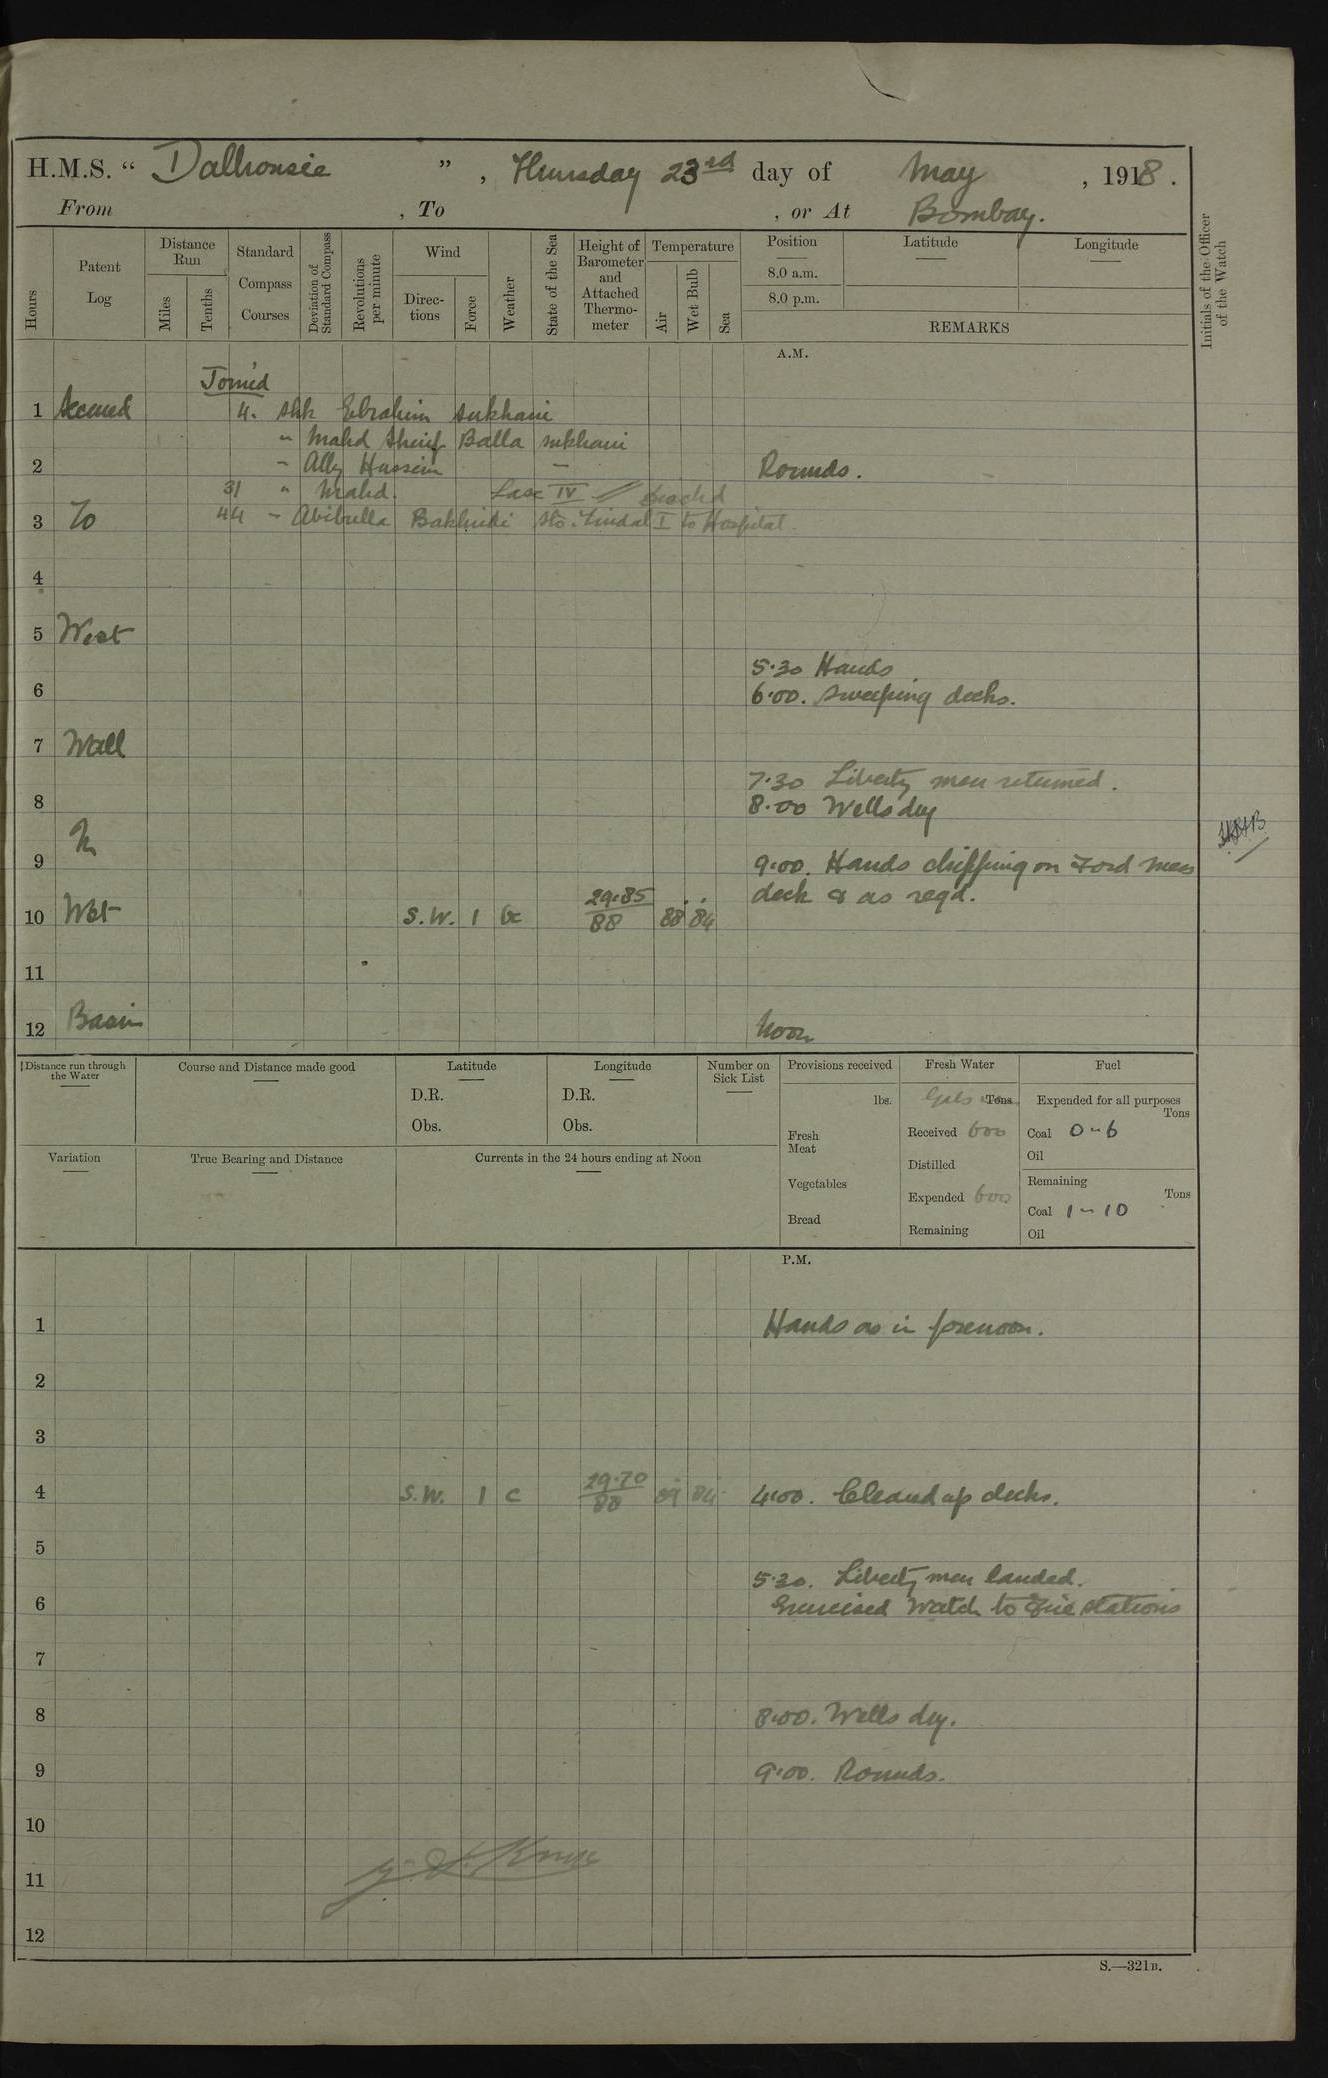 H.M.S. “ Dalhousie ”, Thursday 23rd day of May, 1918.
From , To , or At Bombay.
Hours
Patent Log
Distance Run
Miles
Tenths
Standard Compass Courses
Deviation of Standard Compass
Revolutions per minute
Wind
Direc-tions
Force
Weather
State of the Sea
Height of Barometer and Attached Thermo-meter
Temperature
Air
Wet Bulb
Sea
Position
8.0 a.m.
8.0 p.m.
Latitude
Longitude
REMARKS
Initials of the Officer of the Watch
A.M.
Joined
1 Secured 4. Shk Ebrahim Sukhani
" Mahd Sherif Balla Sukhani
2 " Ally Hussein " Rounds.
31 " Mahd. Lasc IV
3 To 44 " Abibulla Sto. Tindal I to Hospital.
4
5 West
5.30 Hands
6 6.00. Sweeping decks.
7 Wall
7.30 Liberty men returned.
8 8.00 Wells dry
In
9 9.00. Hands chipping on Ford mess
deck & as reqd.
10 Wet S.W. 1 bc 29.85/88 88 84
11
12 Basin Noon
Distance run through the Water
Course and Distance made good
Latitude
D.R.
Obs.
Longitude
D.R.
Obs.
Number on Sick List
Provisions received
lbs.
Fresh Meat
Vegetables
Bread
Fresh Water
Gals Tons
Received 600
Distilled
Expended 600
Remaining
Fuel
Expended for all purposes
Tons
Coal 0-6
Oil
Remaining
Tons
Coal 1-10
Oil
Variation
True Bearing and Distance
Currents in the 24 hours ending at Noon
P.M.
1 Hands as in forenoon.
2
3
4 S.W. 1 c 29.70/88 89 84 4.00. Cleaned up decks.
5
5.30. Liberty men landed.
6 Exercised Watch to Fire stations
7
8 8.00. Wells dry.
9 9.00. Rounds.
10
11
12
S.—321B.